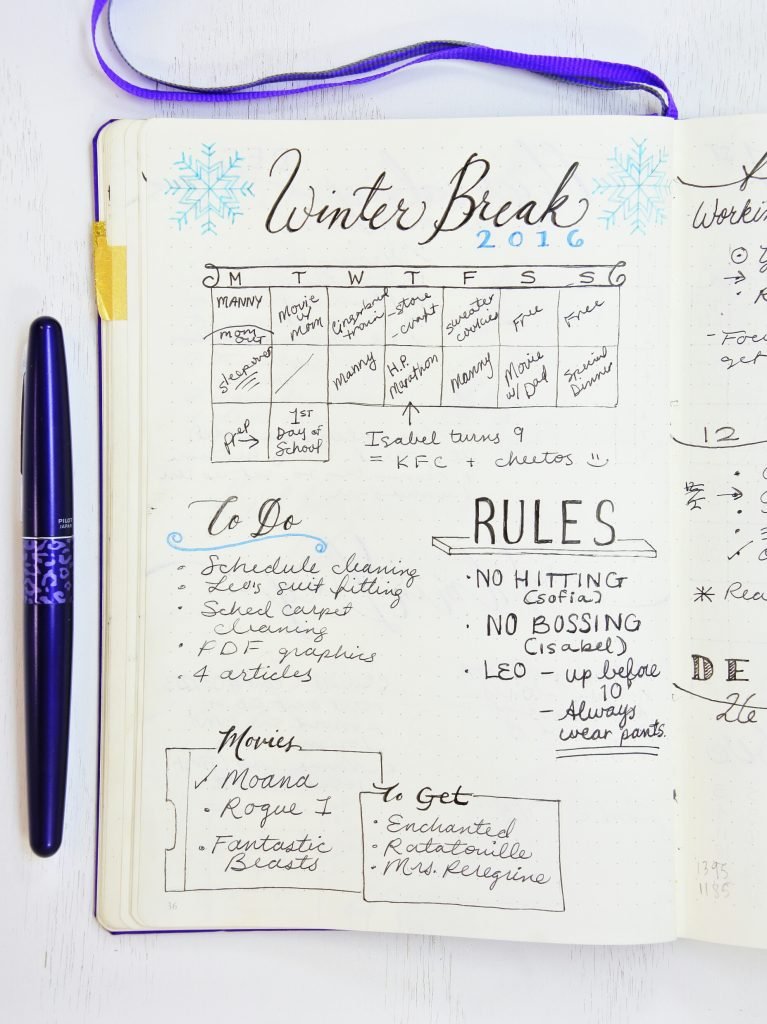 Winter Break
2016
M T W T F S S
MANNY
Mom out
Movie w/ Mom
Gingerbread train
-store
-craft
sweater cookies
Free
Free
Sleepover
Manny
H.P. Marathon
Manny
Movie w/ Dad
Special Dinner
prep →
1ST Day of School
Isabel turns 9
= KFC + cheetos
To Do
• Schedule cleaning
• Leo's suit fitting
• Sched carpet
cleaning
• PDF graphics
• 4 articles
RULES
• NO HITTING
(sofia)
• NO BOSSING
(isabel)
• LEO – up before
10
– Always
wear pants.
Movies
✓ Moana
• Rogue 1
• Fantastic
Beasts
To Get
• Enchanted
• Ratatouille
• Mrs. Peregrine
36
PILOT
JAPAN
Workin
- Foc
get
12
* Rea
DE
26
1395
1185